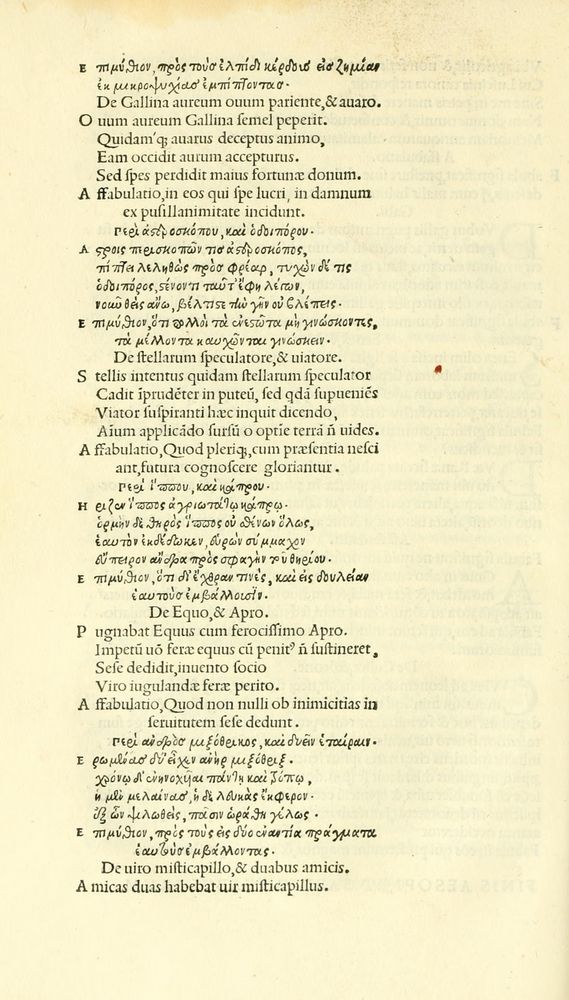 Ε πιμύθιον, πρὸς τοὺσ ἐλπίδι κέρδουσ εἰσ ζημίαν
ἐκ μικροψυχίασ ἐμπίπτοντασ.
De Gallina aureum ouum pariente,& auaro.
O uum aureum Gallina semel peperit.
Quidam'q; auarus deceptus animo,
Eam occidit aurum accepturus.
Sed spes perdidit maius fortunæ donum.
A ffabulatio,in eos qui spe lucri, in damnum
ex pusillanimitate incidunt.
Περὶ ἀστροσκόπου, καὶ ὁδοιπόρου.
Α στροις περισκοπῶν τισ ἀστροσκόπος,
πίπτει λεληθὼς πρὸσ φρέαρ, τυχὼν δέ τις
ὁδοιπόρος, στένοντι ταῦτ' ἔφη λέγων,
νοῦν θεὶς ἄνω, βέλτιστε τὴν γῆν οὐ βλέπεις.
Ε πιμύθιον, ὅτι πολλοὶ τὰ ἐνεστῶτα μὴ γινώσκοντες,
τὰ μέλλοντα καυχῶνται γινώσκειν.
De stellarum speculatore,& uiatore.
S tellis intentus quidam stellarum speculator
Cadit īprudēter in puteū, sed qdā supueniēs
Viator suspiranti hæc inquit dicendo,
Aīum applicādo sursū o optīe terrā ñ uides.
A ffabulatio, Quod pleriq; cum præsentia nesci
ant,futura cognoscere gloriantur.
Περὶ ἵππου, καὶ κάπρου.
Η ριζεν ἵππος ἀγριωτάτῳ κάπρῳ.
ὁρμὴν δὲ θηρὸς ἵππος οὐ σθένων ὅλως,
ἑαυτὸν ἐκδέδωκεν, εὑρὼν σύμμαχον
ἔμπειρον ἄνδρα πρὸς σφαγὴν τοῦ θηρίου.
Ε πιμύθιον, ὅτι δι' ἔχθραν τινὲς, καὶ εἰς δουλείαν
ἑαυτοὺσ ἐμβάλλουσιν.
De Equo,& Apro.
P ugnabat Equus cum ferocissimo Apro.
Impetū uō feræ equus cū penitꝰ ñ sustineret,
Sese dedidit,inuento socio
Viro iugulandæ feræ perito.
A ffabulatio,Quod non nulli ob inimicitias in
seruitutem sese dedunt.
Περὶ ἀνδρὸσ μιξότριχος, καὶ δυεῖν ἑταίραιν.
Ε ρωμένασ δύ' εἶχεν ἀνὴρ μιξόθριξ.
χρόνῳ
ἡ μὲν μελαίνασ, ἡ δὲ λευκὰς ἔκφερον.
ἐξ ὧν ψιλωθεὶς, πᾶσιν ὡράθη γέλως.
Ε πιμύθιον, πρὸς τοὺς εἰς δύο ἐναντία πράγματα
ἑαυτοὺσ ἐμβάλλοντας.
De uiro misticapillo,& duabus amicis.
A micas duas habebat uir misticapillus.